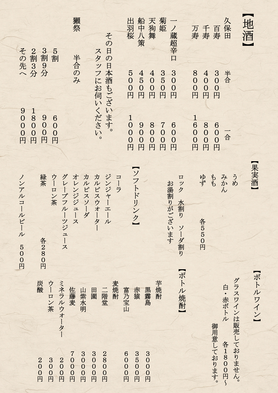 【地酒】
半合 一合
久保田
百寿 300円 600円
千寿 400円 800円
万寿 800円 1600円
一ノ蔵超辛口 300円 600円
菊姫 350円 700円
天狗舞 400円 800円
船中八策 450円 900円
出羽桜 500円 1000円
その日の日本酒もございます。
スタッフにお伺いください。
獺祭 半合のみ
5割 600円
3割9分 900円
2割3分 1800円
その先へ 9000円
【果実酒】
うめ
みかん
もも
ゆず 各550円
ロック 水割り ソーダ割り
お湯割りがございます
【ソフトドリンク】
コーラ
ジンジャーエール
カルピスウォーター
カルピスソーダ
オレンジジュース
グレープフルーツジュース
ウーロン茶
緑茶 各280円
ノンアルコールビール 500円
【ボトルワイン】
グラスワインは販売しておりません。
白・赤ボトル 各1800円〜
御用意しております。
【ボトル焼酎】
芋焼酎
黒霧島 3000円
赤猿 3500円
富乃宝山 6000円
麦焼酎
二階堂 2800円
田園 3000円
山崎水明 3000円
佐藤麦 7000円
ミネラルウォーター 200円
ウーロン茶 300円
炭酸 200円